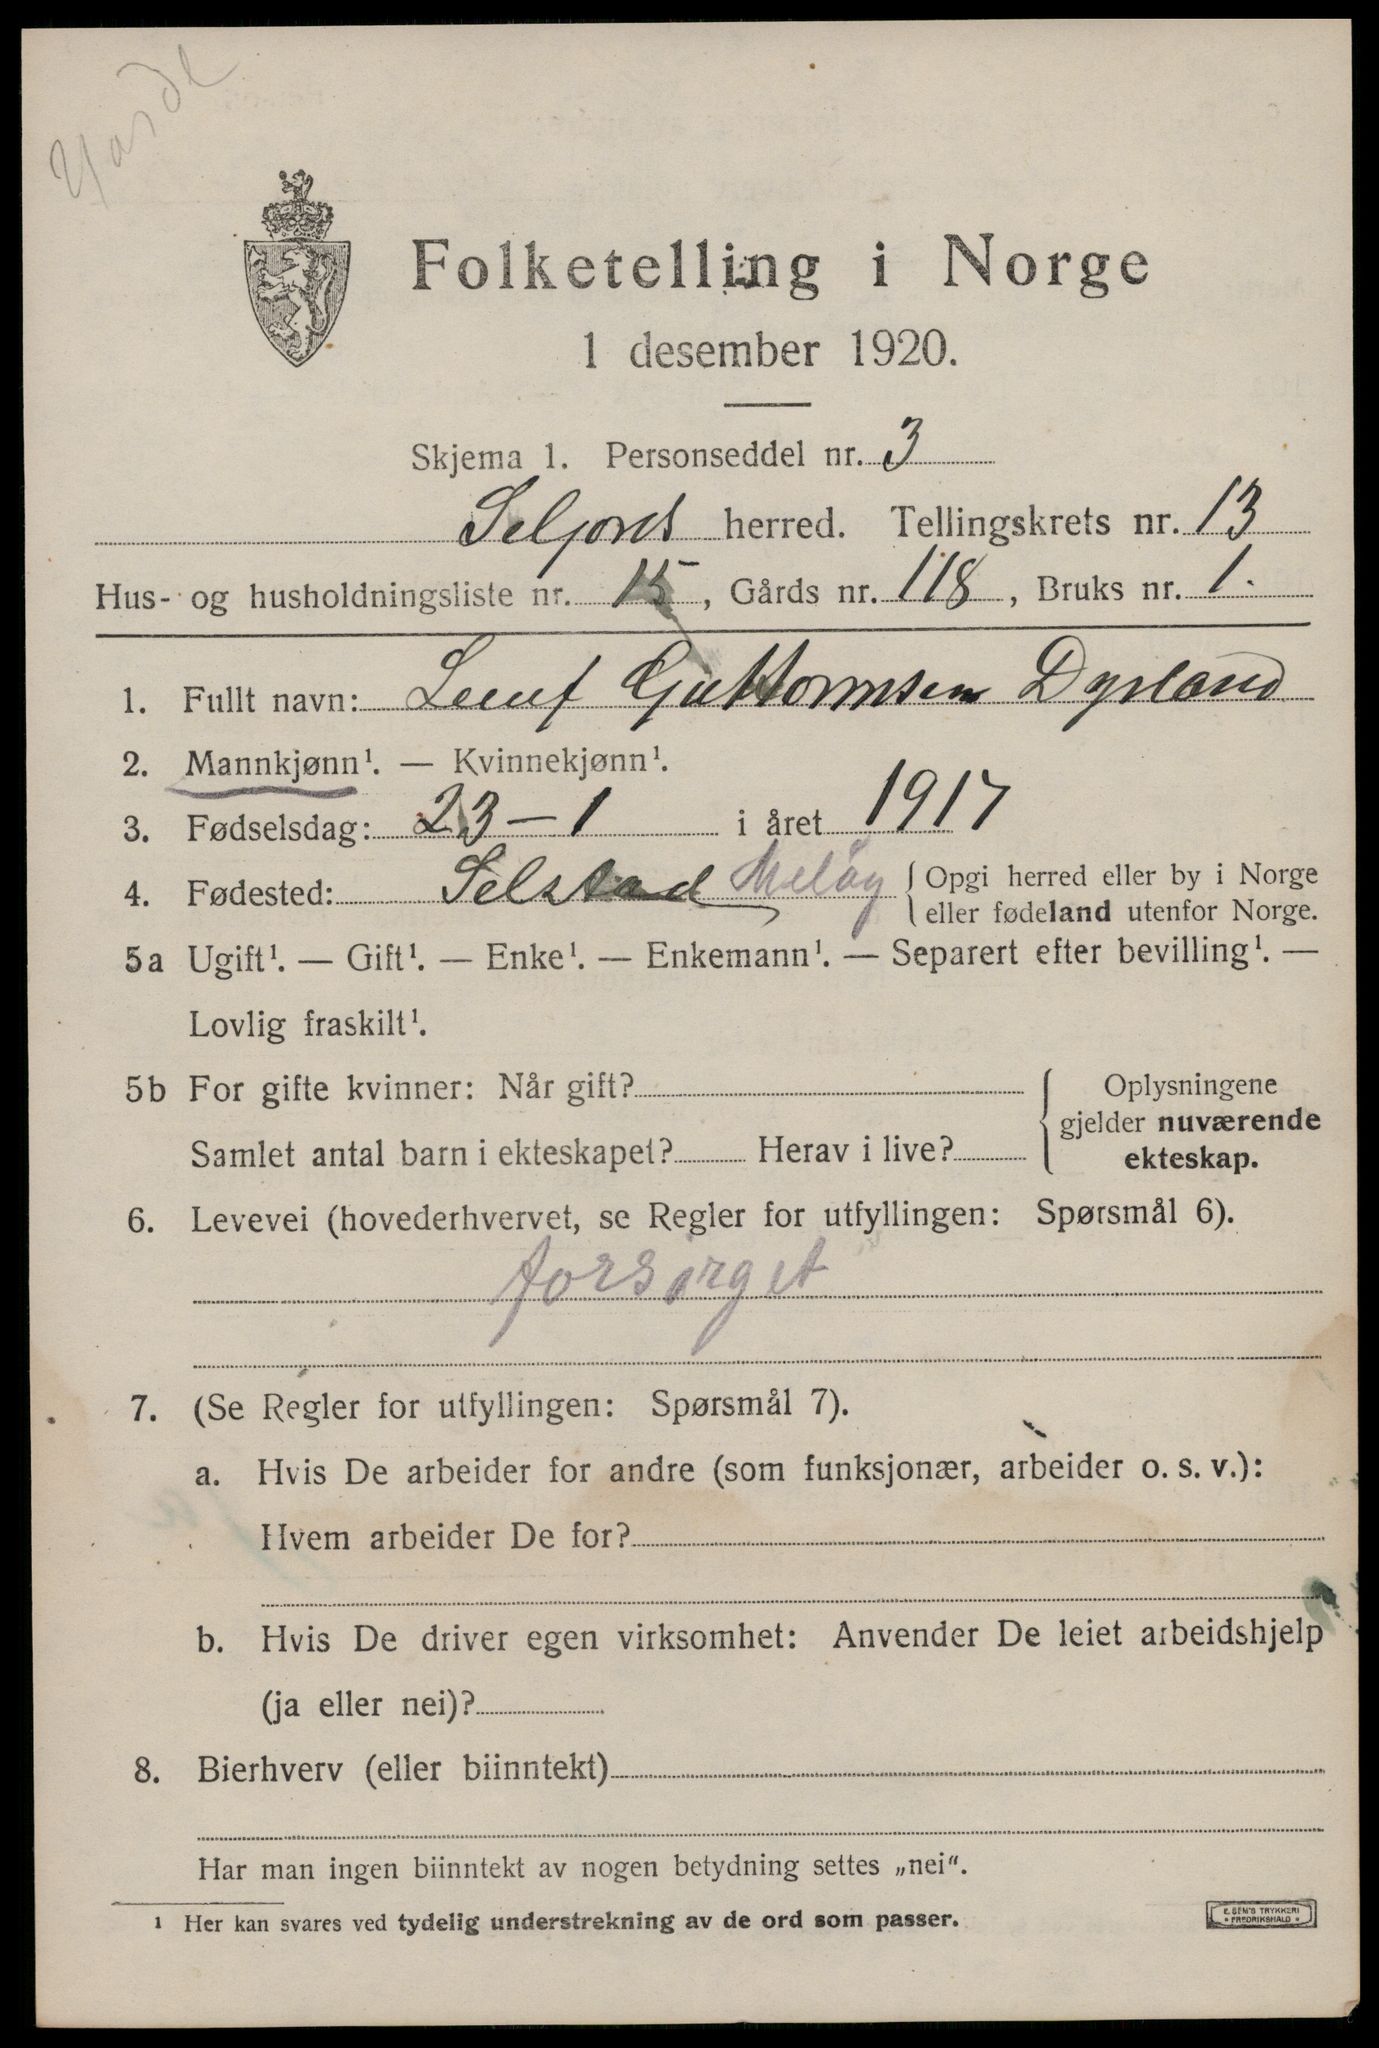 Folketelling i Norge
1 desember 1920.
Skjema 1. Personseddel nr. 3
Seljord herred. Tellingskrets nr. 13
Hus- og husholdningsliste nr. 15, Gårds nr. 118, Bruks nr. 1.
1. Fullt navn: Guttormsen Dyrland
2. Mannkjønn¹. — Kvinnekjønn¹.
3. Fødselsdag: 23-1 i året 1917
4. Fødested: Selstad Meløy { Opgi herred eller by i Norge
eller fødeland utenfor Norge.
5a Ugift¹. — Gift¹. — Enke¹. — Enkemann¹. — Separert efter bevilling¹. —
Lovlig fraskilt¹.
5b For gifte kvinner: Når gift? { Oplysningene
gjelder nuværende
Samlet antal barn i ekteskapet? Herav i live? ekteskap.
6. Levevei (hovederhvervet, se Regler for utfyllingen: Spørsmål 6).
forsørget
7. (Se Regler for utfyllingen: Spørsmål 7).
a. Hvis De arbeider for andre (som funksjonær, arbeider o. s. v.):
Hvem arbeider De for?
b. Hvis De driver egen virksomhet: Anvender De leiet arbeidshjelp
(ja eller nei)?
8. Bierhverv (eller biinntekt)
Har man ingen biinntekt av nogen betydning settes „nei“.
¹ Her kan svares ved tydelig understrekning av de ord som passer.
E. SEM'S TRYKKERI
FREDRIKSHALD